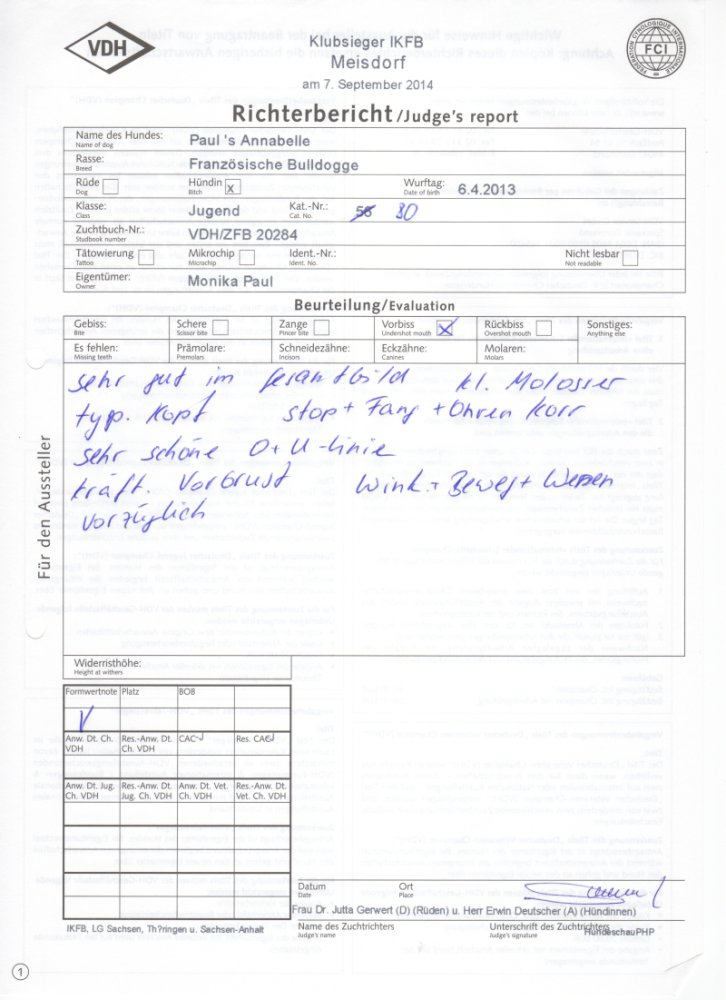 VDH
Klubsieger IKFB
Meisdorf
am 7. September 2014
FCI
FEDERATION CYNOLOGIQUE INTERNATIONALE
Richterbericht /Judge's report
Name des Hundes: Paul 's Annabelle
Name of dog
Rasse: Französische Bulldogge
Breed
Rüde Hündin x Wurftag: 6.4.2013
Dog Bitch Date of birth
Klasse: Jugend Kat.-Nr.: 56 80
Class Cat. No.
Zuchtbuch-Nr.: VDH/ZFB 20284
Studbook number
Tätowierung Mikrochip Ident.-Nr.: Nicht lesbar
Tattoo Microchip Ident. No. Not readable
Eigentümer: Monika Paul
Owner
Beurteilung/Evaluation
Gebiss: Schere Zange Vorbiss X Rückbiss Sonstiges:
Bite Scissor bite Pincer bite Undershot mouth Overshot mouth Anything else
Es fehlen: Prämolare: Schneidezähne: Eckzähne: Molaren:
Missing teeth Premolars Incisors Canines Molars
sehr gut im Gesamtbild kl. Molosser
typ. Kopf stop + Fang + Ohren korr
sehr schöne O + U-linie
kräft. Vorbrust Wink. + Beweg + Wesen
vorzüglich
Für den Aussteller
Widerristhöhe:
Height at withers
Formwertnote Platz BOB
V
Anw. Dt. Ch. VDH Res.-Anw. Dt. Ch. VDH CAC-J Res. CACJ
Anw. Dt. Jug. Ch. VDH Res.-Anw. Dt. Jug. Ch. VDH Anw. Dt. Vet. Ch. VDH Res.-Anw. Dt. Vet. Ch. VDH
Datum Ort
Date Place
Frau Dr. Jutta Gerwert (D) (Rüden) u. Herr Erwin Deutscher (A) (Hündinnen)
IKFB, LG Sachsen, Th?ringen u. Sachsen-Anhalt
Name des Zuchtrichters Unterschrift des Zuchtrichters
Judge's name Judge's signature
HundeschauPHP
1